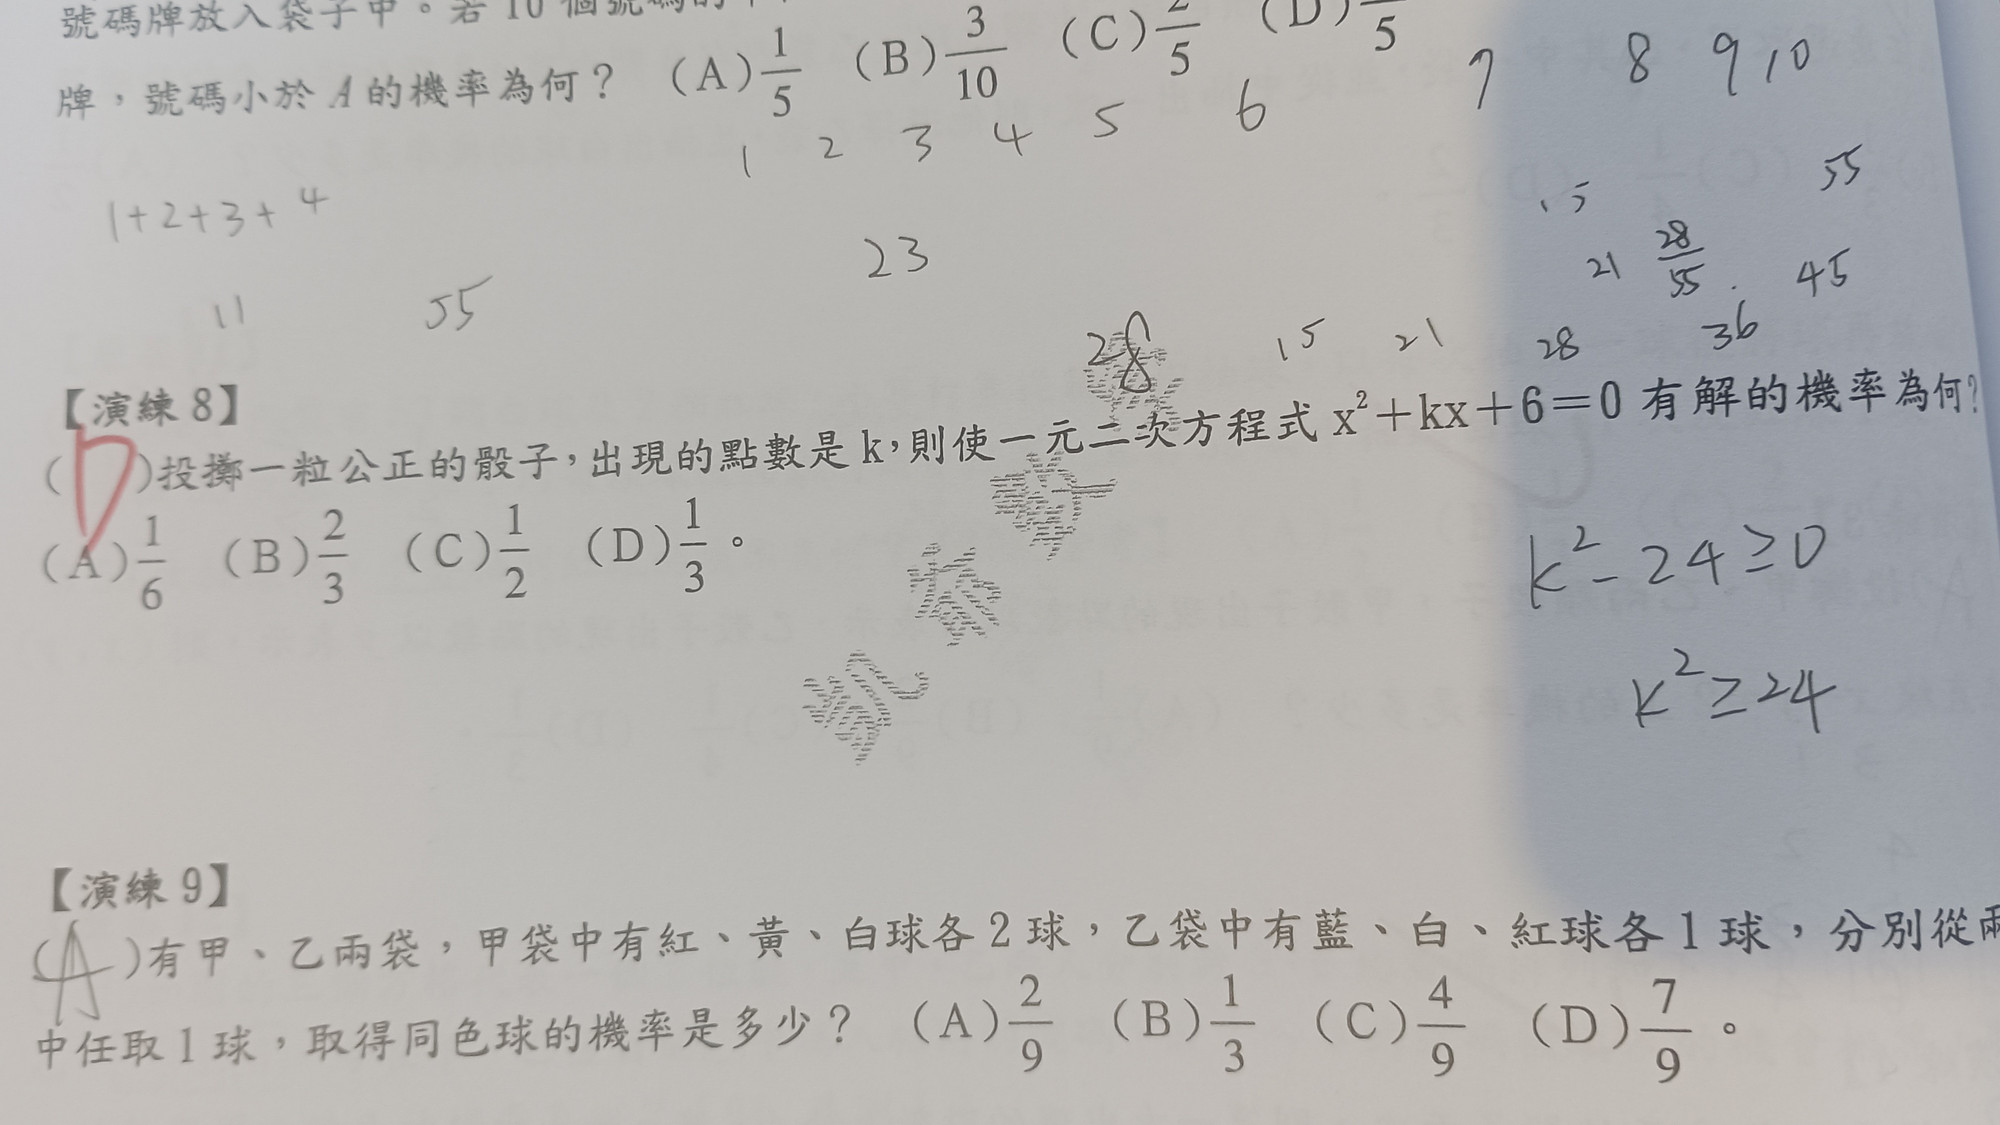 號碼牌放入袋子中。若10個號碼的
牌,號碼小於A的機率為何? (A)1/5 (B)3/10 (C)2/5 (D) /5
1 2 3 4 5 6 7 8 9 10
1+2+3+4
11 55 23
15 55
21 28/55 45
28 15 21 28 36
【演練8】
(D)投擲一粒公正的骰子,出現的點數是k,則使一元二次方程式x²+kx+6=0有解的機率為何?
(A)1/6 (B)2/3 (C)1/2 (D)1/3。
k²-24≥0
k²≥24
【演練9】
(A)有甲、乙兩袋,甲袋中有紅、黃、白球各2球,乙袋中有藍、白、紅球各1球,分別從兩
中任取1球,取得同色球的機率是多少? (A)2/9 (B)1/3 (C)4/9 (D)7/9。